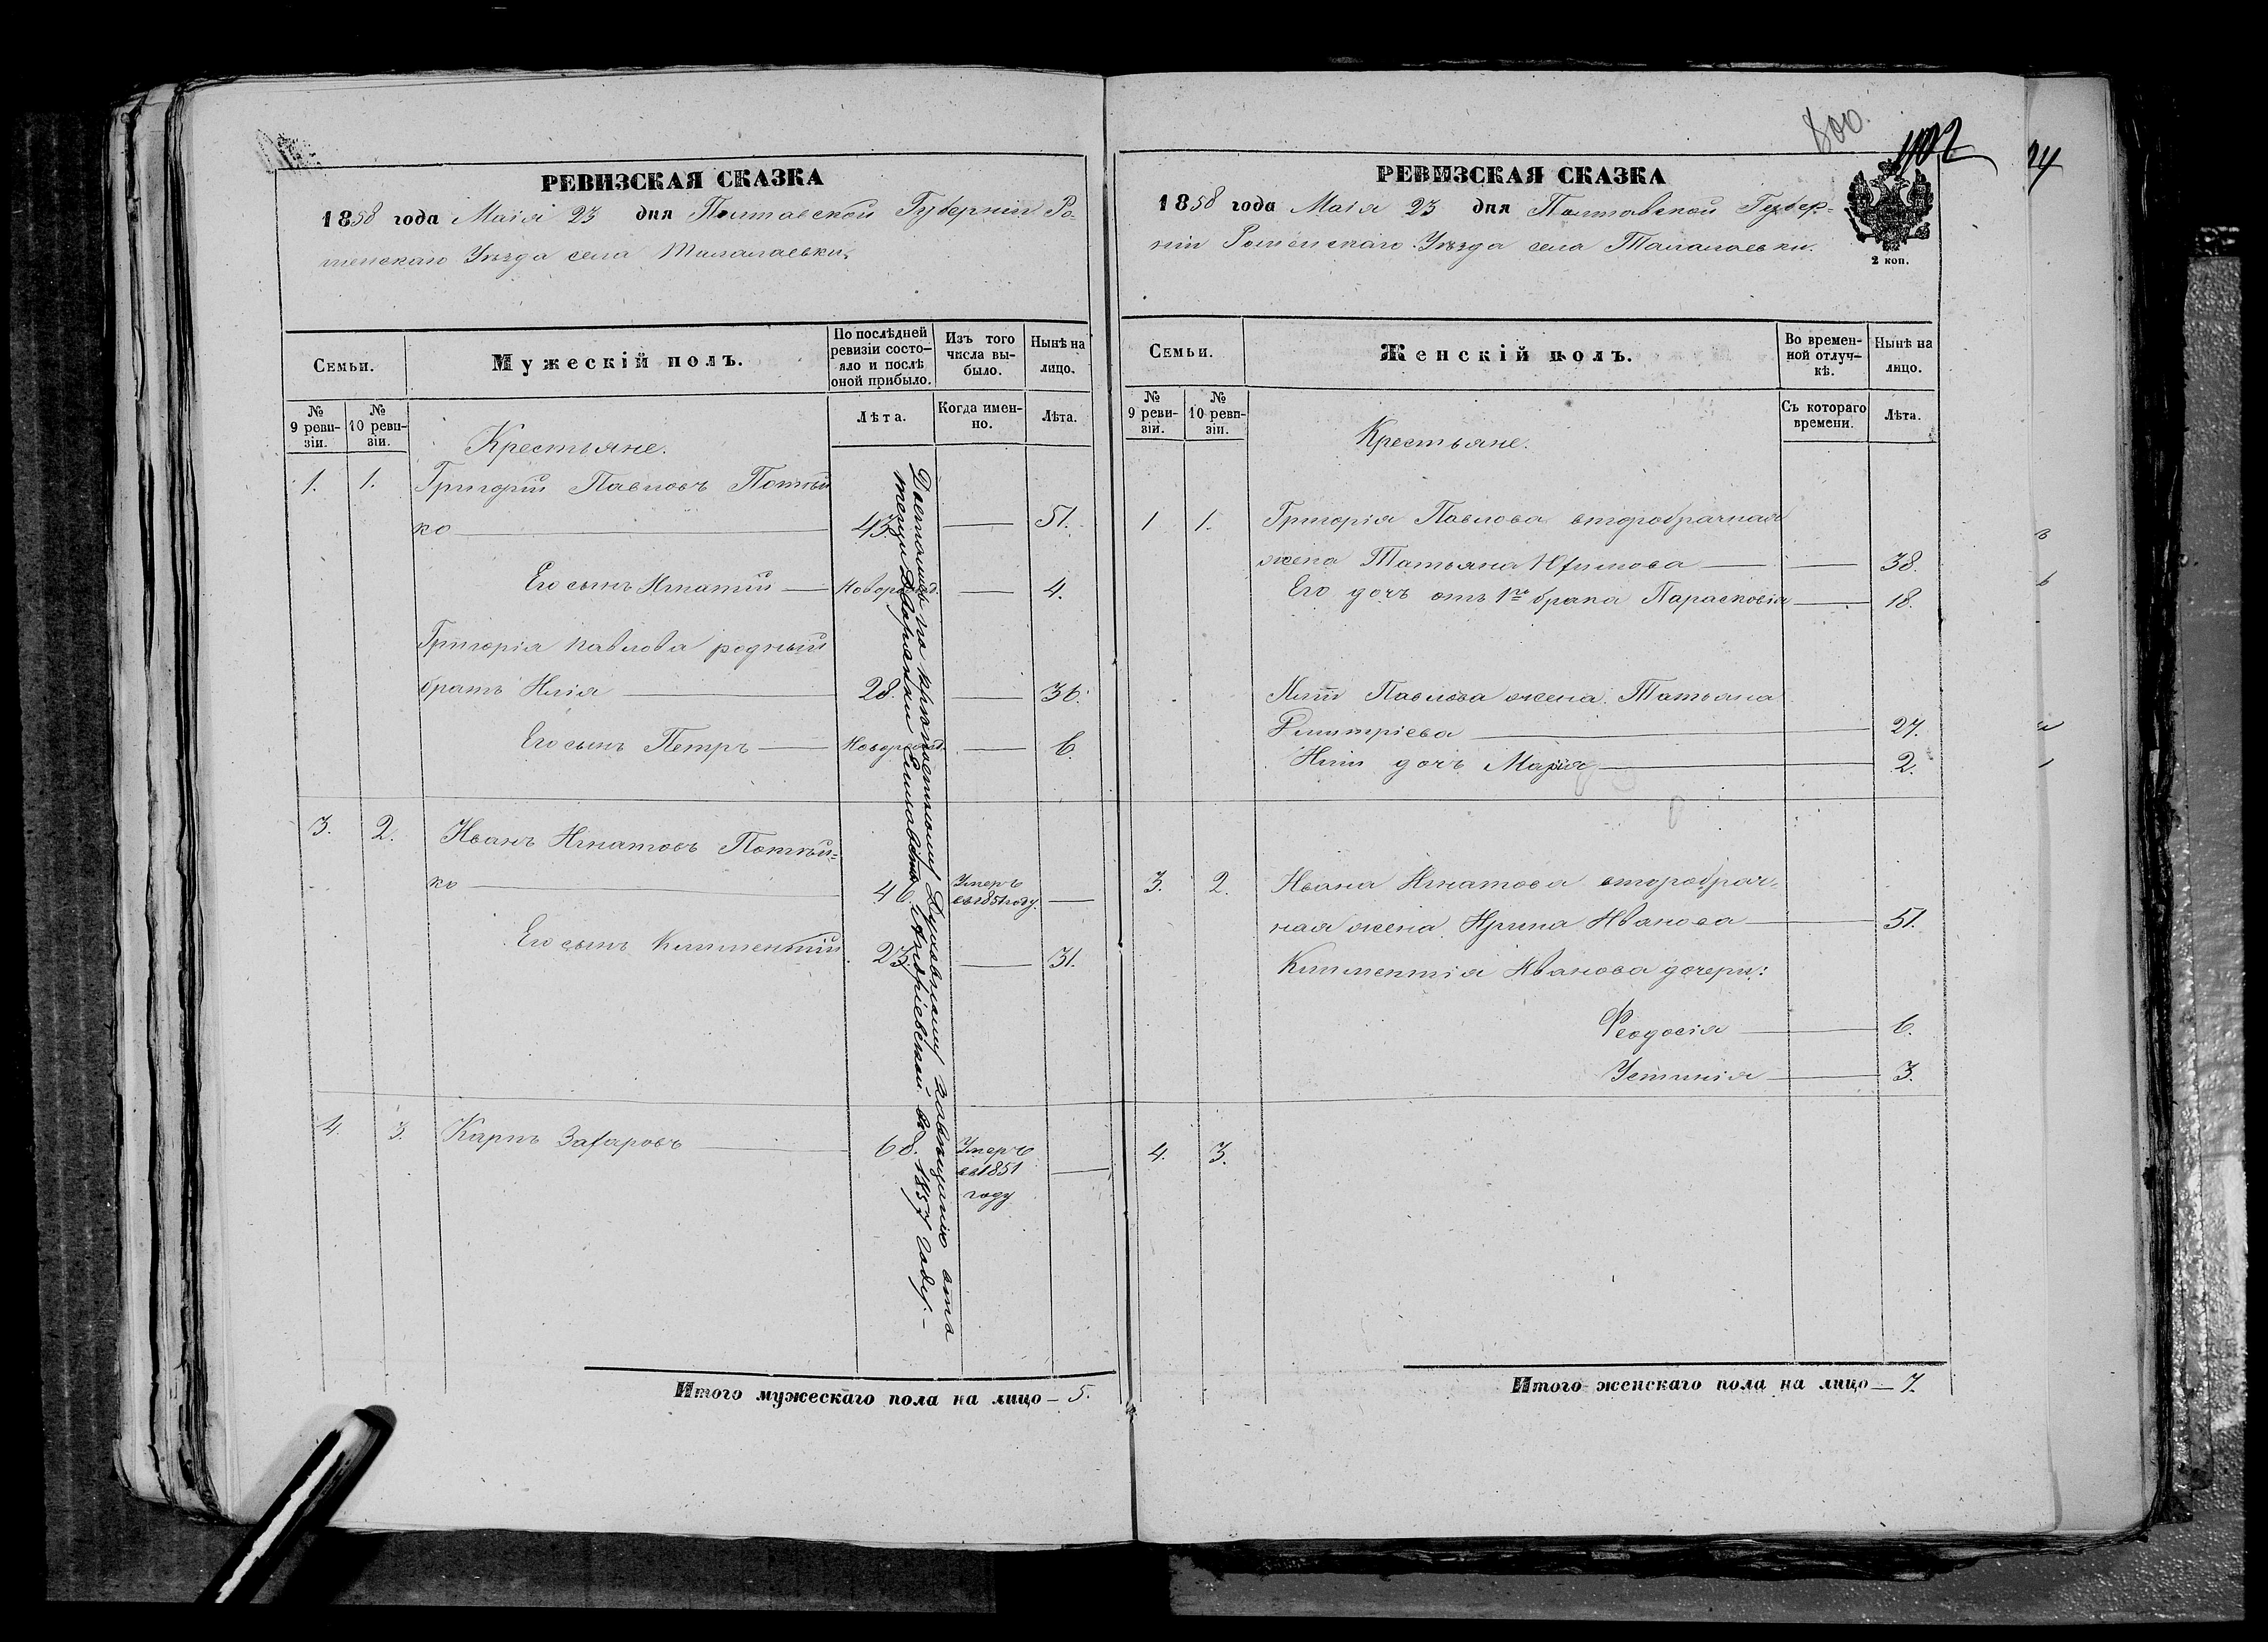 800.
402
РЕВИЗСКАЯ СКАЗКА
1858 года Маія 23 дня Полтавской Губерніи Ро-
менскаго Уѣзда села Талалаевки.
Семьи.
Мужескій полъ.
По послѣдней ревизіи состо-
яло и послѣ оной прибыло.
Изъ того числа вы-
было.
Нынѣ на лицо.
№ 9 реви-
зіи.
№ 10 реви-
зіи.
Лѣта.
Когда имен-
но.
Лѣта.
Крестьяне.
1. 1. Григорій Павловъ Потѣй
ко 43. 51.
Его сынъ Игнатій Новорожд. 4.
Григорія Павлова родный
братъ Илія 28. 36.
Его сынъ Петръ Новорожд. 6.
3. 2. Иванъ Игнатовъ Потѣй-
ко 46. Умеръ въ 1851 году.
Его сынъ Климентій 23. 31.
4. 3. Карпъ Захаровъ 68. Умеръ
въ 1851
году
Достались по крѣпостному Духовному Завѣщанію отъ
Дворянки Елисаветы 1857 году.
Итого мужескаго пола на лицо — 5.
РЕВИЗСКАЯ СКАЗКА
1858 года Маія 23 дня Полтавской Губер-
ніи Роменскаго Уѣзда села Талалаевки.
2 коп.
Семьи.
Женскій полъ.
Во времен-
ной отлуч-
кѣ.
Нынѣ на лицо.
№ 9 реви-
зіи.
№ 10 реви-
зіи.
Съ котораго времени.
Лѣта.
Крестьяне.
1 1. Григорія Павлова второбрачная
жена Татьяна 38.
Его дочь отъ 1го брака Парасковія 18.
Иліи Павлова жена Татьяна
Димитріева 27.
Иліи дочь Марія 2.
3. 2. Ивана Игнатова второбрач-
ная жена Ирина Иванова 51.
Климентія Иванова дочери:
Феодосія 6.
Устинія 3.
4. 3.
Итого женскаго пола на лицо — 7.